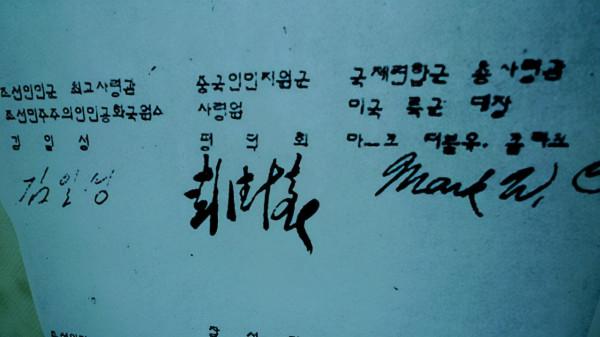 조선인민군 최고사령관
조선민주주의인민공화국원수
김 일 성
김일성
중국인민지원군
사령원
덕 회
彭德懷
국제련합군 총사령관
미국 륙군 대장
마ㅡ크 더블유. 클라크
Mark W. C